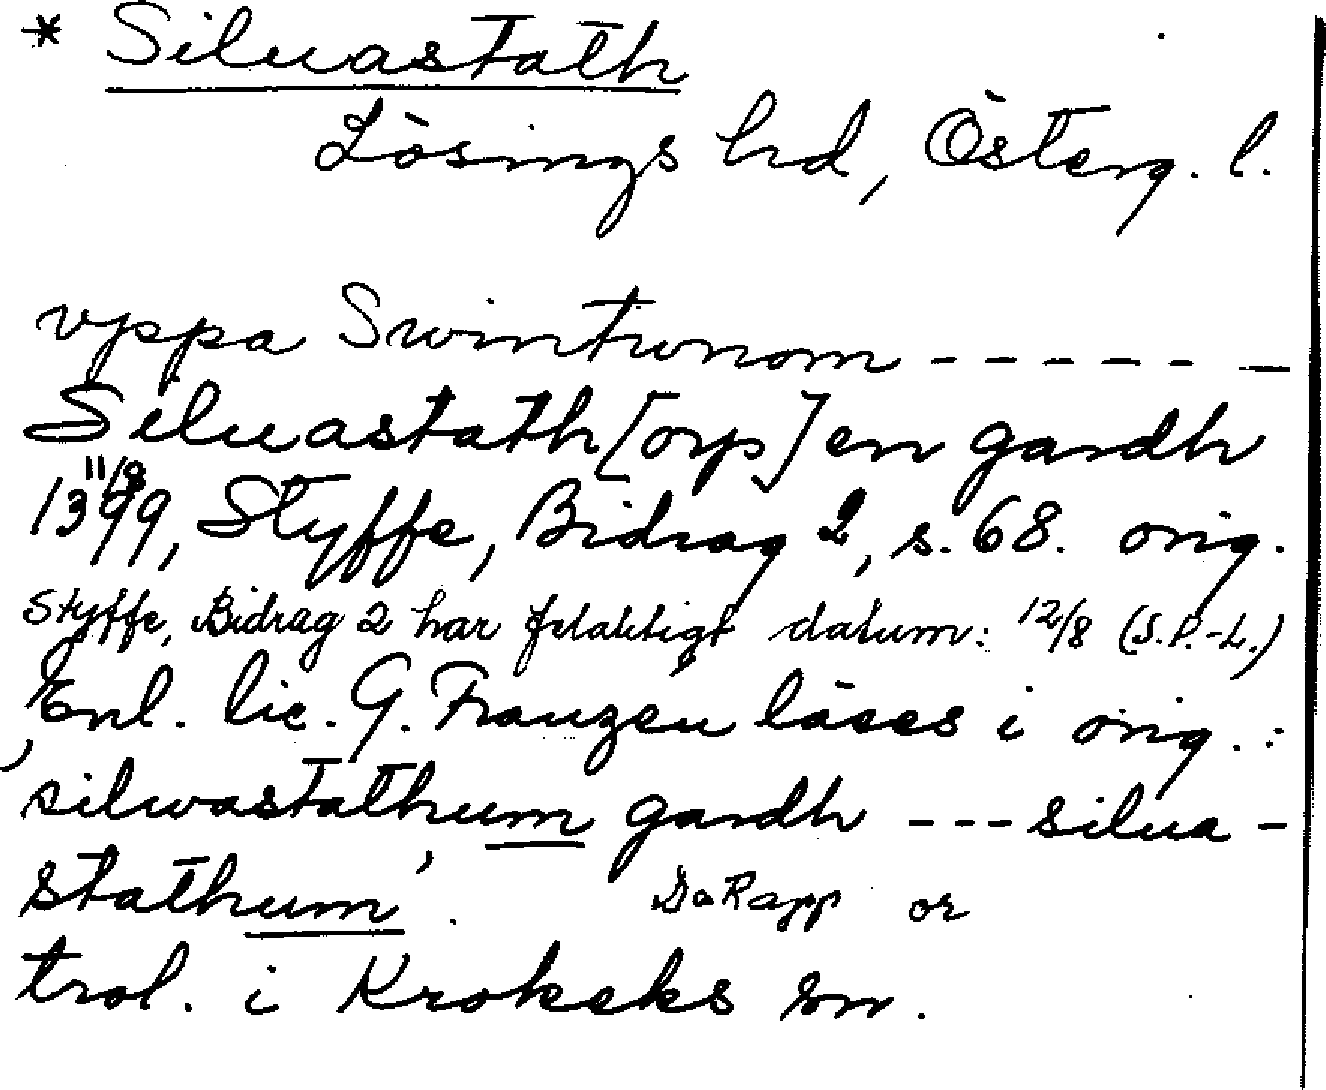 * Siluastath
Lösings hd, Österg. l.
vppa Swintunom - - - - - -
Siluastath[orp] en gardh
13 11/8 99, Styffe, Bidrag 2, s. 68. orig.
Styffe, Bidrag 2 har felaktigt datum: 12/8 (S.P.-L.)
Enl. lic. G. Franzén läses i orig.:
silwastathum gardh --- silua-
stathum'. DaRapp or
trol. i Krokeks sn.